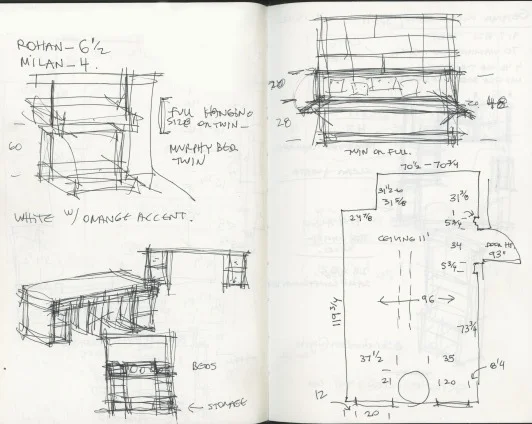 ROHAN – 6 1/2
MILAN – 4.
FULL HANGING
SIZE OR TWIN –
MURPHY BED
TWIN
60
WHITE W/ ORANGE ACCENT.
BEDS
← STORAGE
28
28
TWIN OR FULL.
70 1/2 – 70 3/4
31 5/8
31 3/8
24 7/8
1
5 3/4
CEILING 11'
34
DOOR HT
93"
5 3/4
96
119 3/4
73 3/4
37 1/2
35
8 1/4
21
20
12
1
20